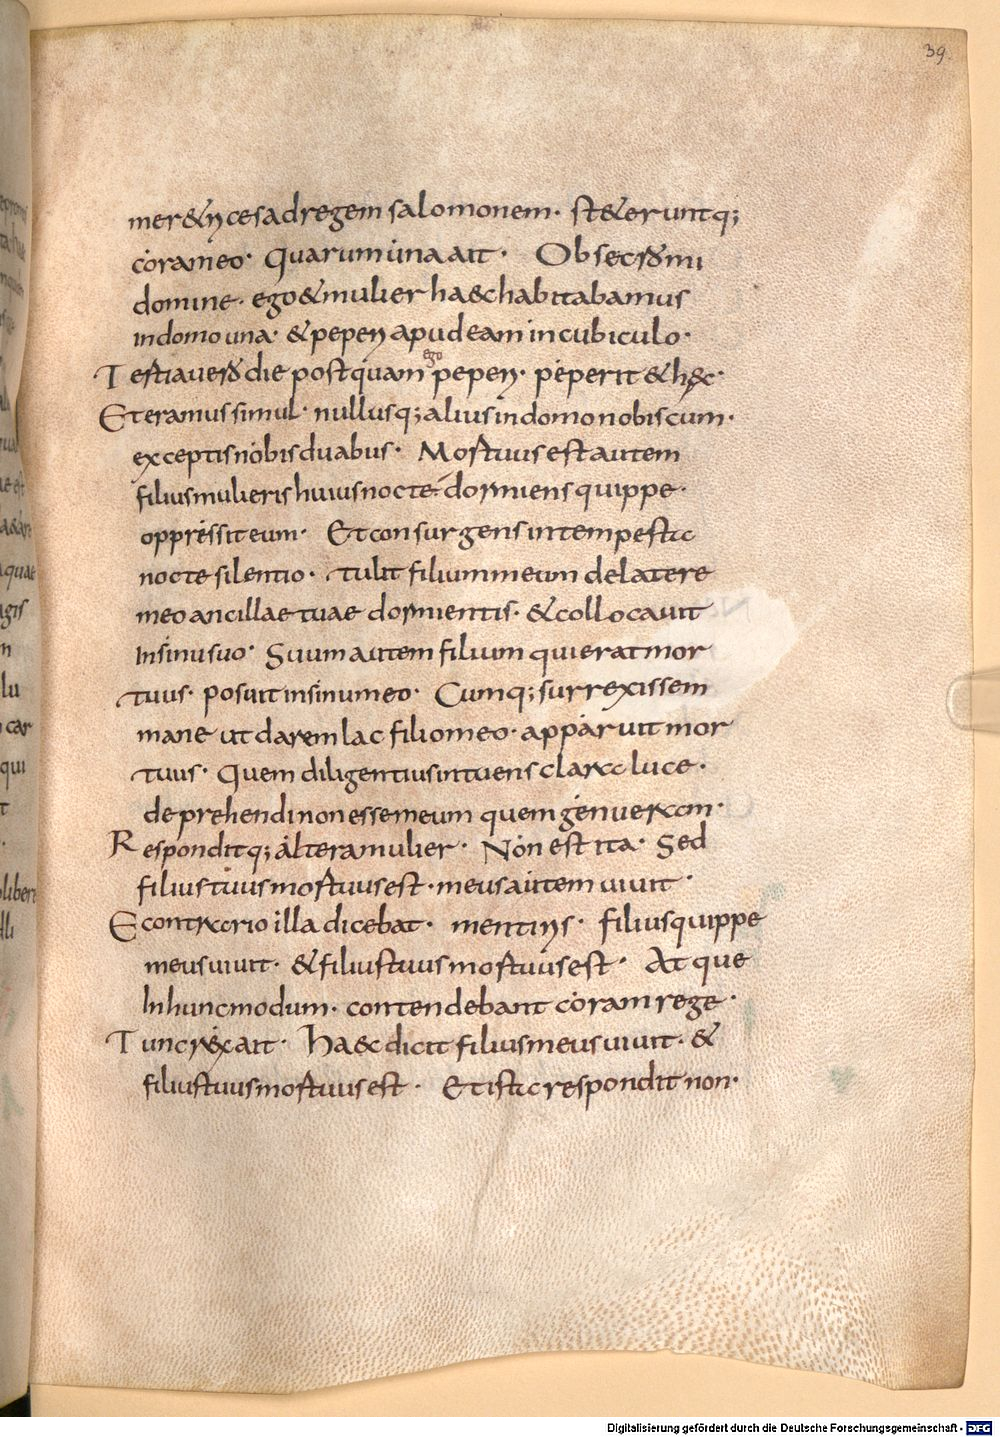 39
mer&rices ad regem salomonem· st&eruntq;
coram eo· Quarum una ait· Obsecro mi
domine· ego & mulier haec habitabamus
in domo una· & peperi apud eam in cubiculo·
Tertia vero die postquam ego peperi· peperit & hęc·
Et eramus simul· nullusq; alius in domo nobiscum·
exceptis nobis duabus· Mortuus est autem
filius mulieris huius nocte dormiens quippe·
oppressit eum· Et consurgens in tempesta
nocte silentio· tulit filium meum de latere
meo ancillae tuae dormientis· & collocavit
in sinu suo· Suum autem filium qui erat mor
tuus· posuit in sinu meo· Cumq; surrexissem
mane ut darem lac filio meo· apparuit mor
tuus· Quem diligentius intuens clara luce·
deprehendi non esse meum quem genueram·
Responditq; altera mulier· Non est ita· Sed
filius tuus mortuus est· meus autem vivit·
E contrario illa dicebat· mentiris· filius quippe
meus vivit· & filius tuus mortuus est· Atque
In hunc modum· contendebant coram rege·
Tunc rex ait· Haec dicit filius meus vivit· &
filius tuus mortuus est· Et ista respondit non·
Digitalisierung gefördert durch die Deutsche Forschungsgemeinschaft - DFG